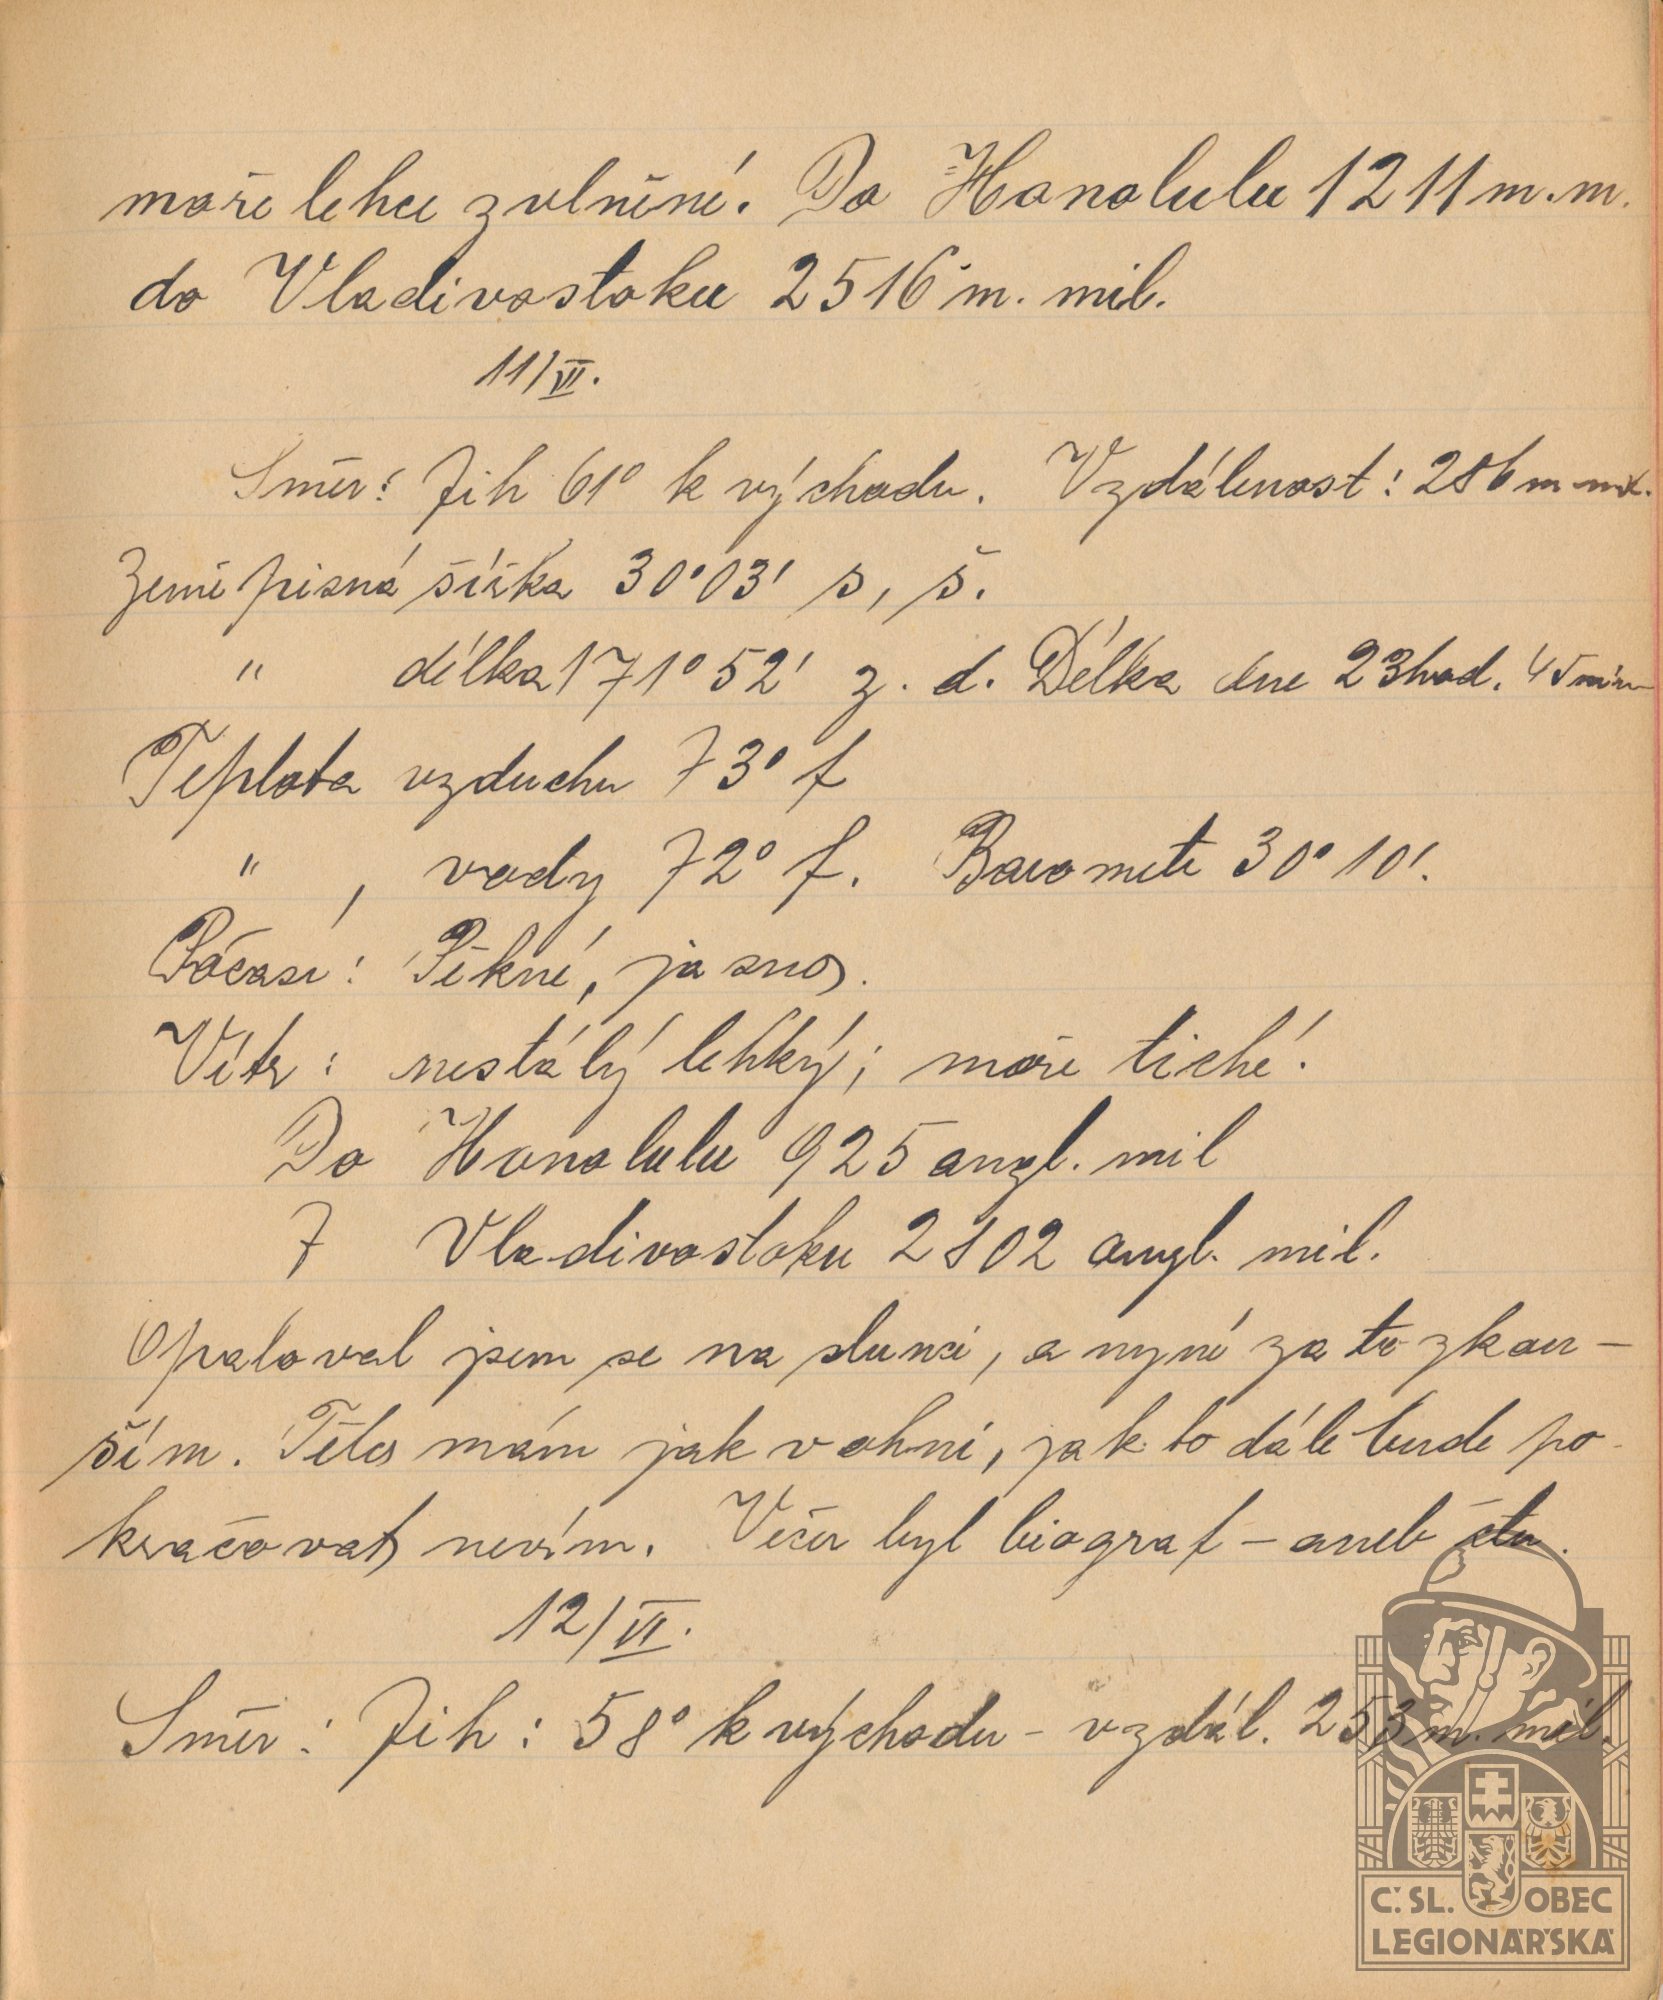 moře lehce zvlněné. Do Honolulu 1211 m. m.
do Vladivostoku 2516 m. mil.
11/VI.
Směr: Jih 61° k východu. Vzdálenost: 286 m mil.
Zeměpisná šířka 30°03' s, š.
" délka 171°52' z. d. Délka dne 23 hod. 45 min
Teplota vzduchu 73° f
" , vody 72° f. Barometr 30° 10'.
Počasí: Pěkné, jasno.
Vítr: nestálý lehký; moře tiché.
Do Honolulu 925 angl. mil
Z Vladivostoku 2802 angl. mil.
Opaloval jsem se na slunci, a nyní za to zkou-
ším. Tělo mám jak v ohni, jak to dále bude po-
kračovat nevím. Večer byl biograf – aneb čtu.
12/VI.
Směr: Jih: 58° k východu – vzdál. 253 m. mil.
Č. SL. OBEC
LEGIONÁŘSKÁ